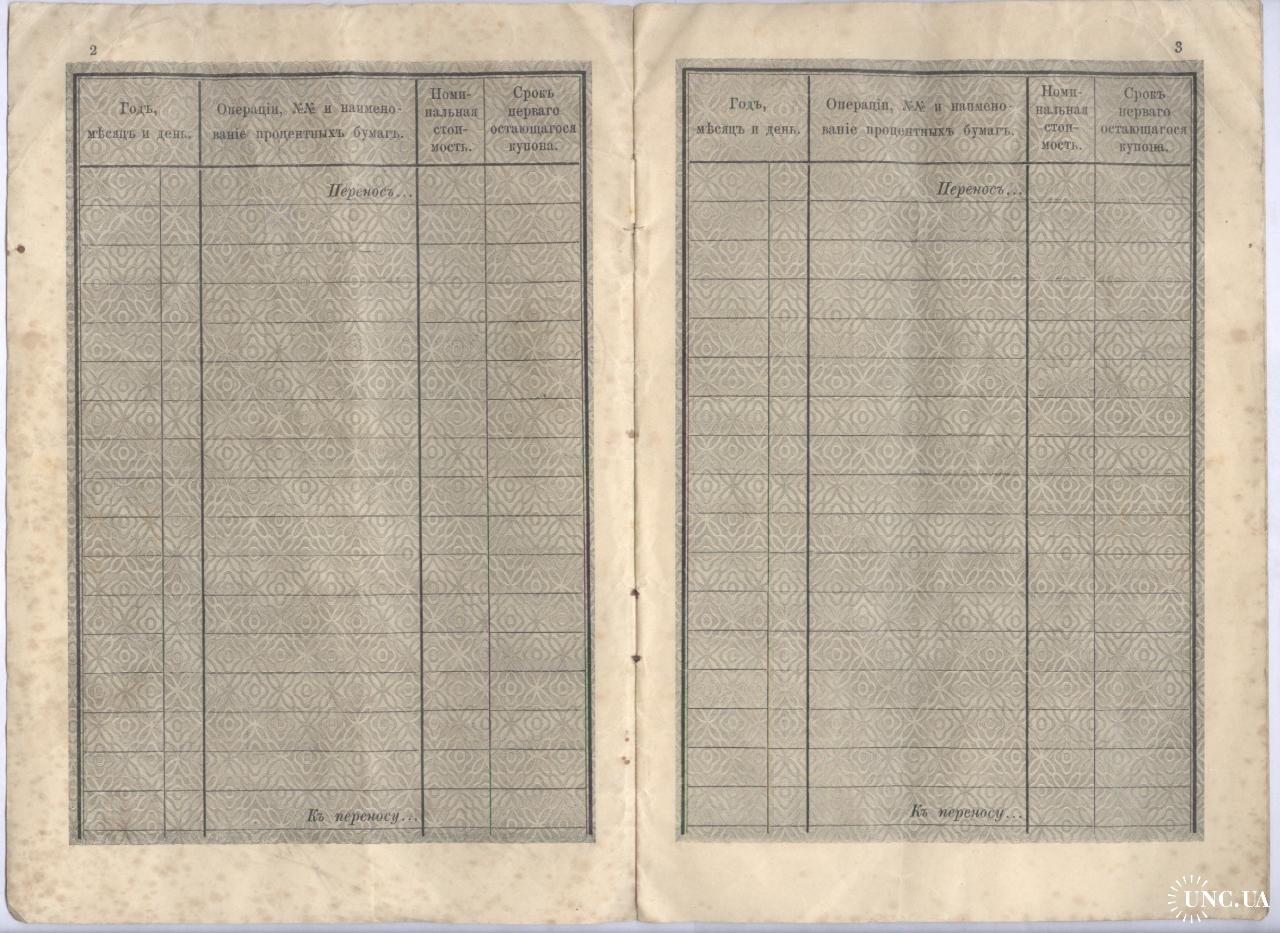 2
Годъ,
мѣсяцъ и день.
Операціи, №№ и наимено-
ваніе процентныхъ бумагъ.
Номи-
нальная
стои-
мость.
Срокъ
перваго
остающагося
купона.
Переносъ...
Къ переносу...
3
Годъ,
мѣсяцъ и день.
Операціи, №№ и наимено-
ваніе процентныхъ бумагъ.
Номи-
нальная
стои-
мость.
Срокъ
перваго
остающагося
купона.
Переносъ...
Къ переносу...
UNC.UA